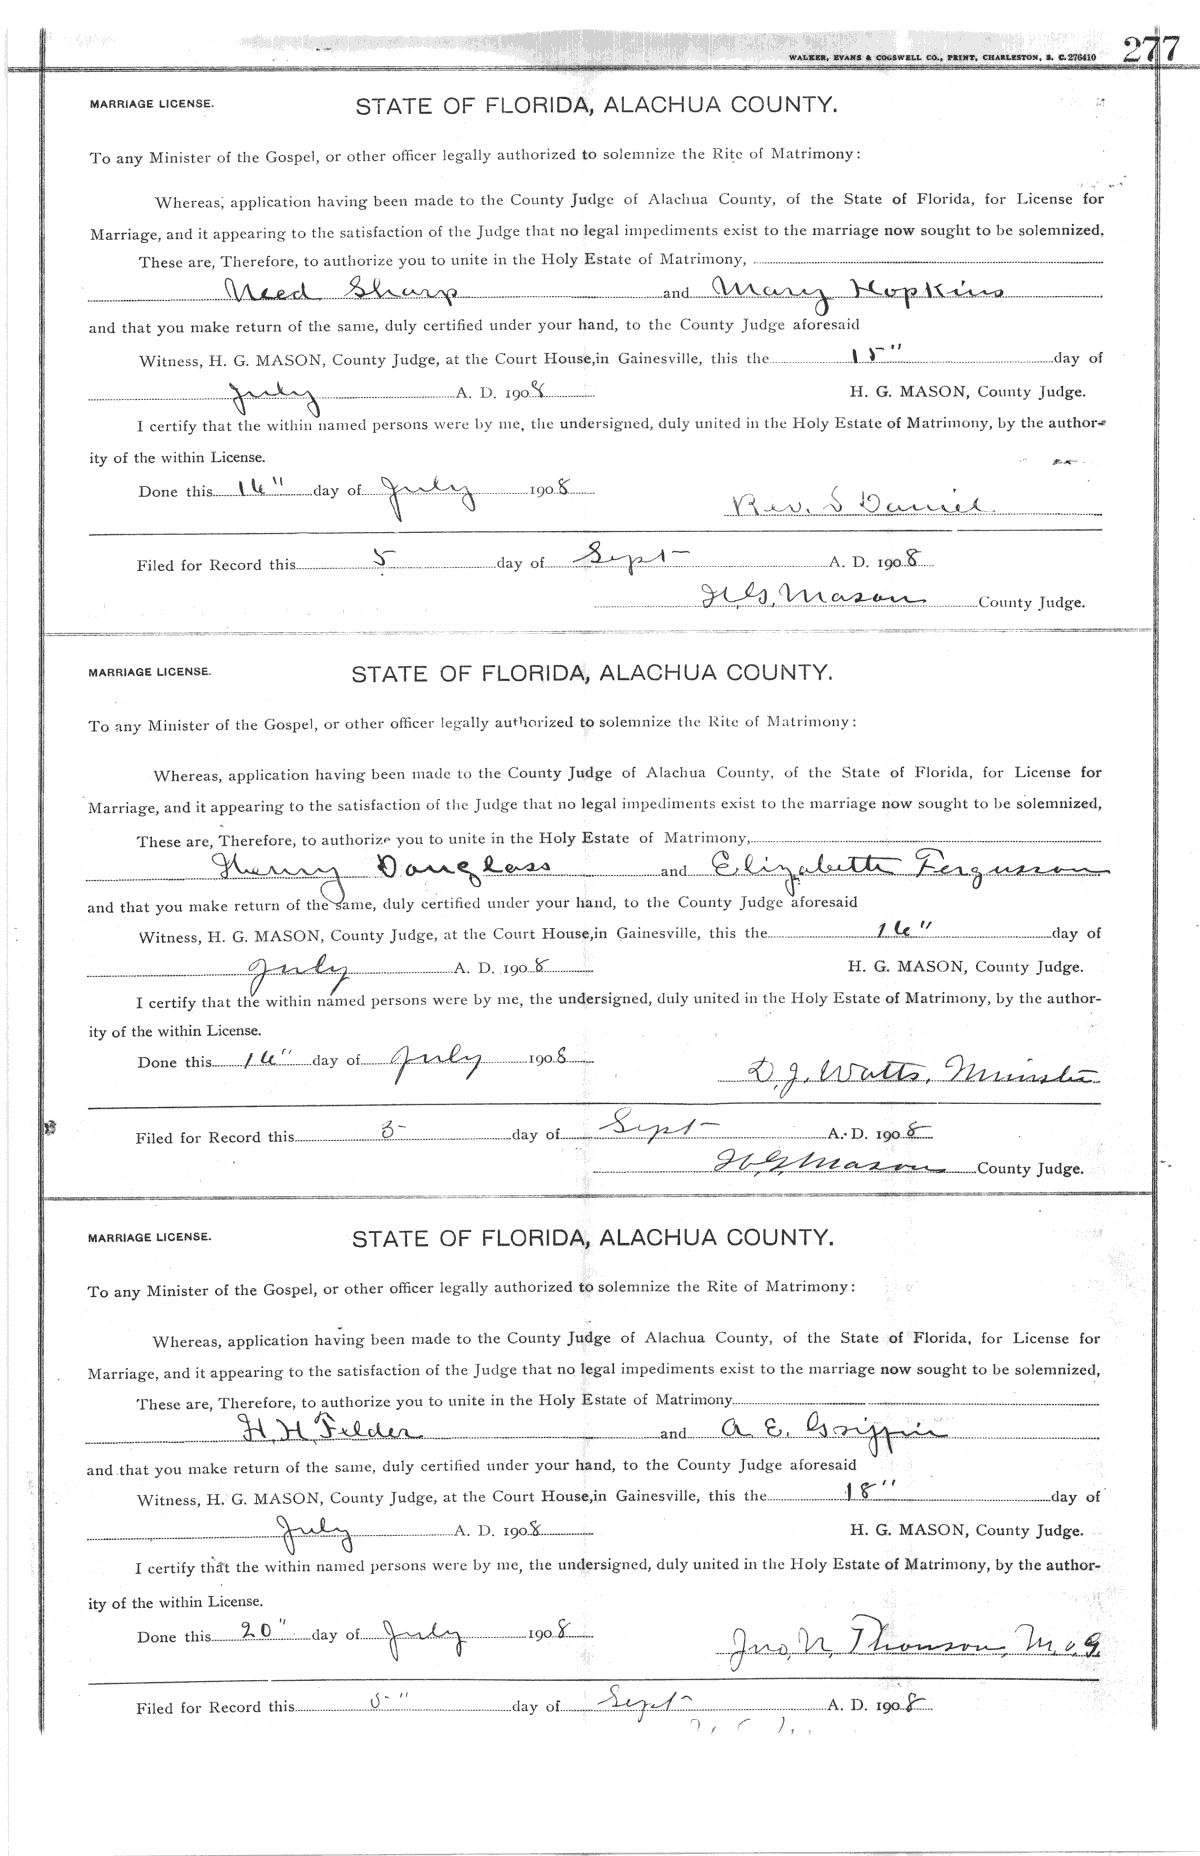 WALKER, EVANS & COGSWELL CO., PRINT, CHARLESTON, S. C. 276410 277
MARRIAGE LICENSE. STATE OF FLORIDA, ALACHUA COUNTY.
To any Minister of the Gospel, or other officer legally authorized to solemnize the Rite of Matrimony:
Whereas, application having been made to the County Judge of Alachua County, of the State of Florida, for License for
Marriage, and it appearing to the satisfaction of the Judge that no legal impediments exist to the marriage now sought to be solemnized,
These are, Therefore, to authorize you to unite in the Holy Estate of Matrimony,
Need Sharp and Mary Hopkins
and that you make return of the same, duly certified under your hand, to the County Judge aforesaid
Witness, H. G. MASON, County Judge, at the Court House, in Gainesville, this the 15" day of
July A. D. 1908 H. G. MASON, County Judge.
I certify that the within named persons were by me, the undersigned, duly united in the Holy Estate of Matrimony, by the author-
ity of the within License.
Done this 16" day of July 1908
Rev. S Daniel
Filed for Record this 5 day of Sept A. D. 1908
H. G. Mason County Judge.
MARRIAGE LICENSE. STATE OF FLORIDA, ALACHUA COUNTY.
To any Minister of the Gospel, or other officer legally authorized to solemnize the Rite of Matrimony:
Whereas, application having been made to the County Judge of Alachua County, of the State of Florida, for License for
Marriage, and it appearing to the satisfaction of the Judge that no legal impediments exist to the marriage now sought to be solemnized,
These are, Therefore, to authorize you to unite in the Holy Estate of Matrimony,
Henry Douglass and Elizabeth Fergusson
and that you make return of the same, duly certified under your hand, to the County Judge aforesaid
Witness, H. G. MASON, County Judge, at the Court House, in Gainesville, this the 16" day of
July A. D. 1908 H. G. MASON, County Judge.
I certify that the within named persons were by me, the undersigned, duly united in the Holy Estate of Matrimony, by the author-
ity of the within License.
Done this 16" day of July 1908
D. J. Watts, Minister
Filed for Record this 5 day of Sept A. D. 1908
H. G. Mason County Judge.
MARRIAGE LICENSE. STATE OF FLORIDA, ALACHUA COUNTY.
To any Minister of the Gospel, or other officer legally authorized to solemnize the Rite of Matrimony:
Whereas, application having been made to the County Judge of Alachua County, of the State of Florida, for License for
Marriage, and it appearing to the satisfaction of the Judge that no legal impediments exist to the marriage now sought to be solemnized,
These are, Therefore, to authorize you to unite in the Holy Estate of Matrimony
H. H. Felder and A. E. Griffin
and that you make return of the same, duly certified under your hand, to the County Judge aforesaid
Witness, H. G. MASON, County Judge, at the Court House, in Gainesville, this the 18" day of
July A. D. 1908 H. G. MASON, County Judge.
I certify that the within named persons were by me, the undersigned, duly united in the Holy Estate of Matrimony, by the author-
ity of the within License.
Done this 20" day of July 1908
Jno. N. Thomson, M. o. G.
Filed for Record this 5" day of Sept A. D. 1908